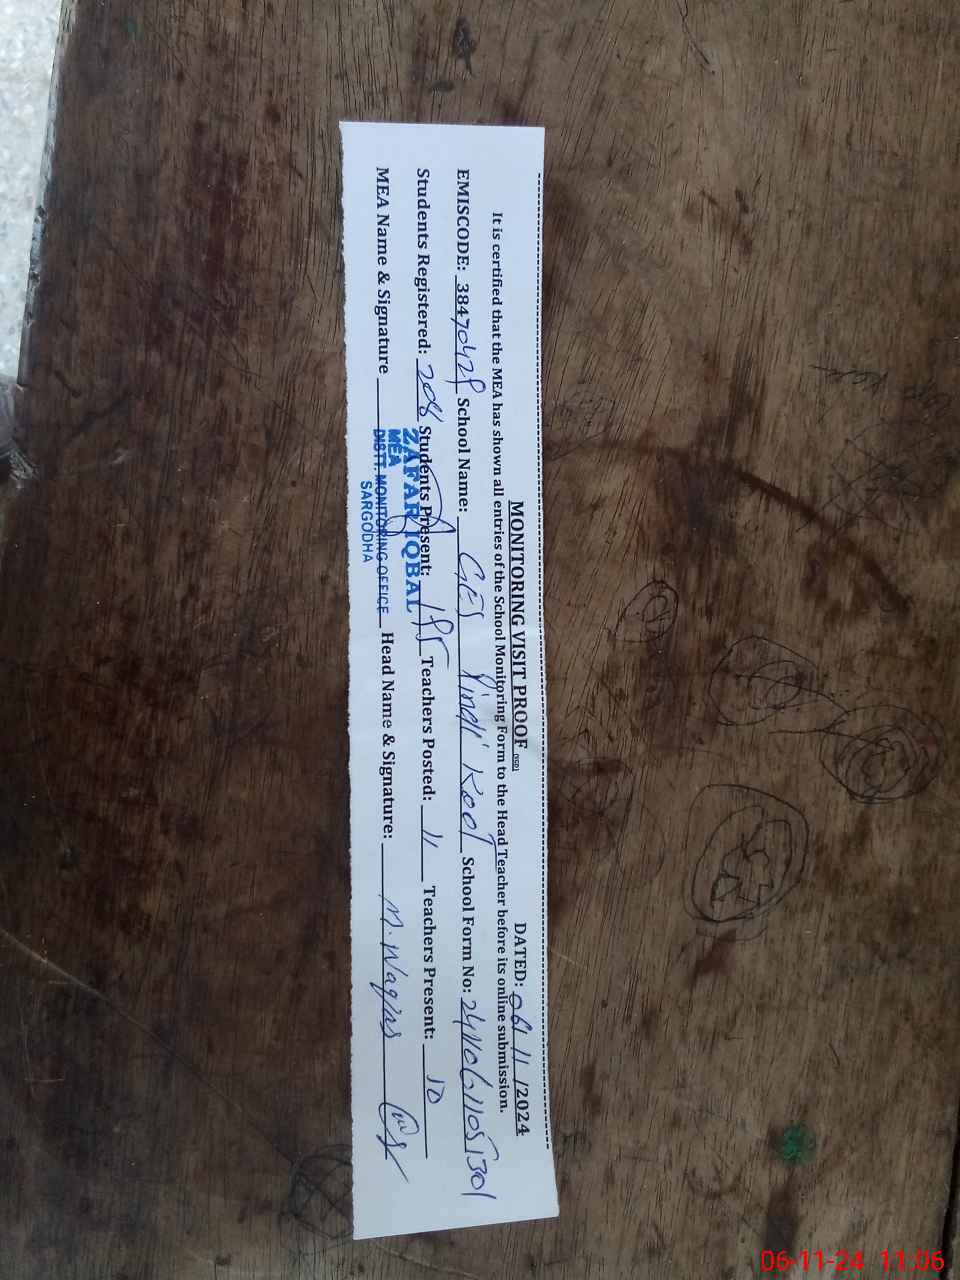 MONITORING VISIT PROOF
DATED: 06/11/2024
It is certified that the MEA has shown all entries of the School Monitoring Form to the Head Teacher before its online submission.
EMISCODE: 38470429 School Name: GES Pindi Koot School Form No: 24110611051301
Students Registered: 208 Students Present: 195 Teachers Posted: 11 Teachers Present: 10
MEA Name & Signature Head Name & Signature: M. Waqas
ZAFAR IQBAL
MEA
DISTT. MONITORING OFFICE
SARGODHA
06-11-24 11:06